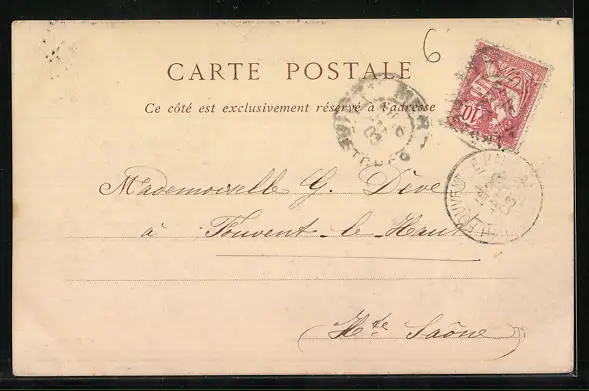 6
CARTE POSTALE
Ce côté est exclusivement réservé à l'adresse
10
03
03
Mademoiselle G. Dève
à Fouvent-le-Haut
(Hte Saône)